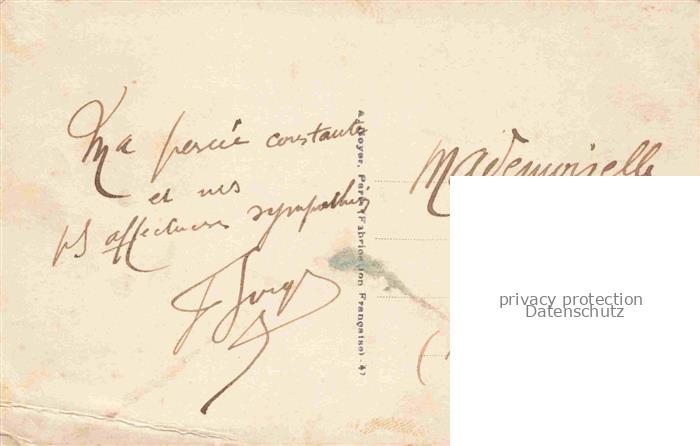 Ma pensée constante
et mes
pls affectueuses sympathies
A. Noyer, Paris (Fabrication Française). 47
Mademoiselle
(
privacy protection
Datenschutz